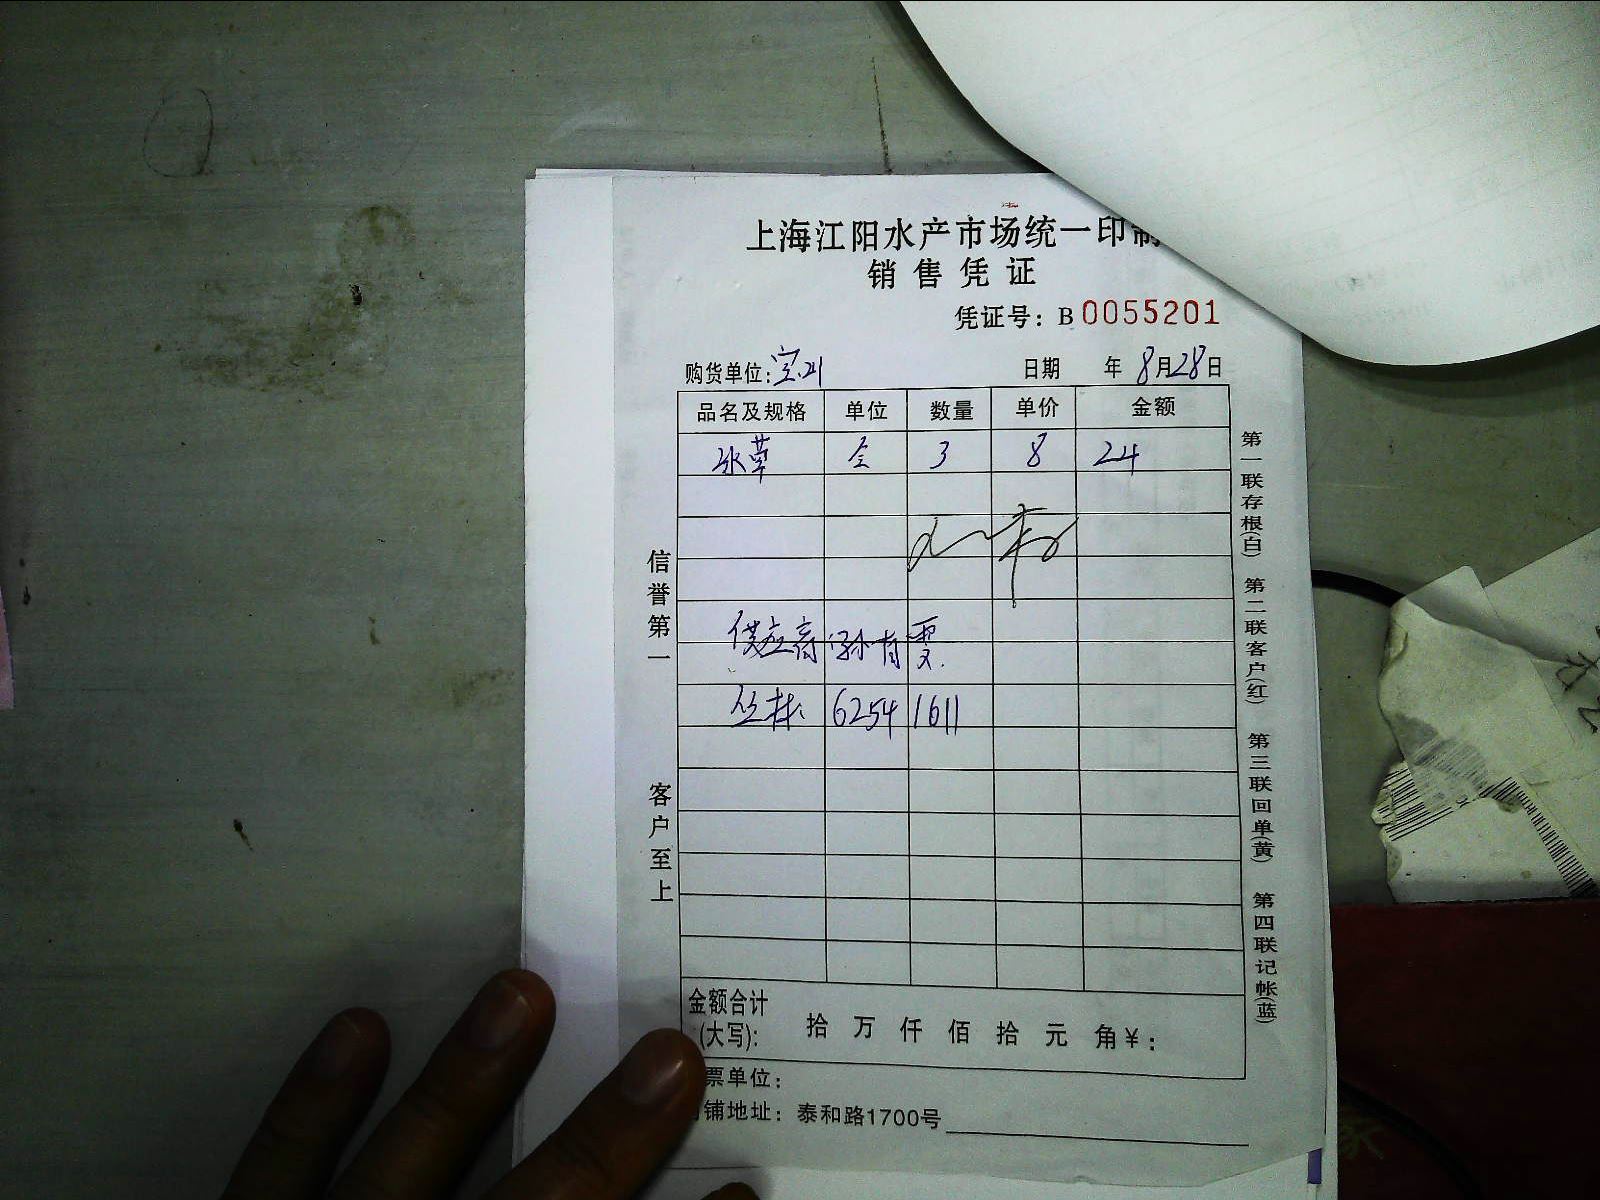 上海江阳水产市场统一印制
销售凭证
凭证号：B 0055201
购货单位：宝山 日期 年 8月28日
品名及规格 单位 数量 单价 金额
冰草 合 3 8 24
供应商 孙有雯
6254 1611
信誉第一
客户至上
第一联存根(白) 第二联客户(红) 第三联回单(黄) 第四联记帐(蓝)
金额合计
(大写)： 拾 万 仟 佰 拾 元 角 ¥：
票单位：
铺地址：泰和路1700号